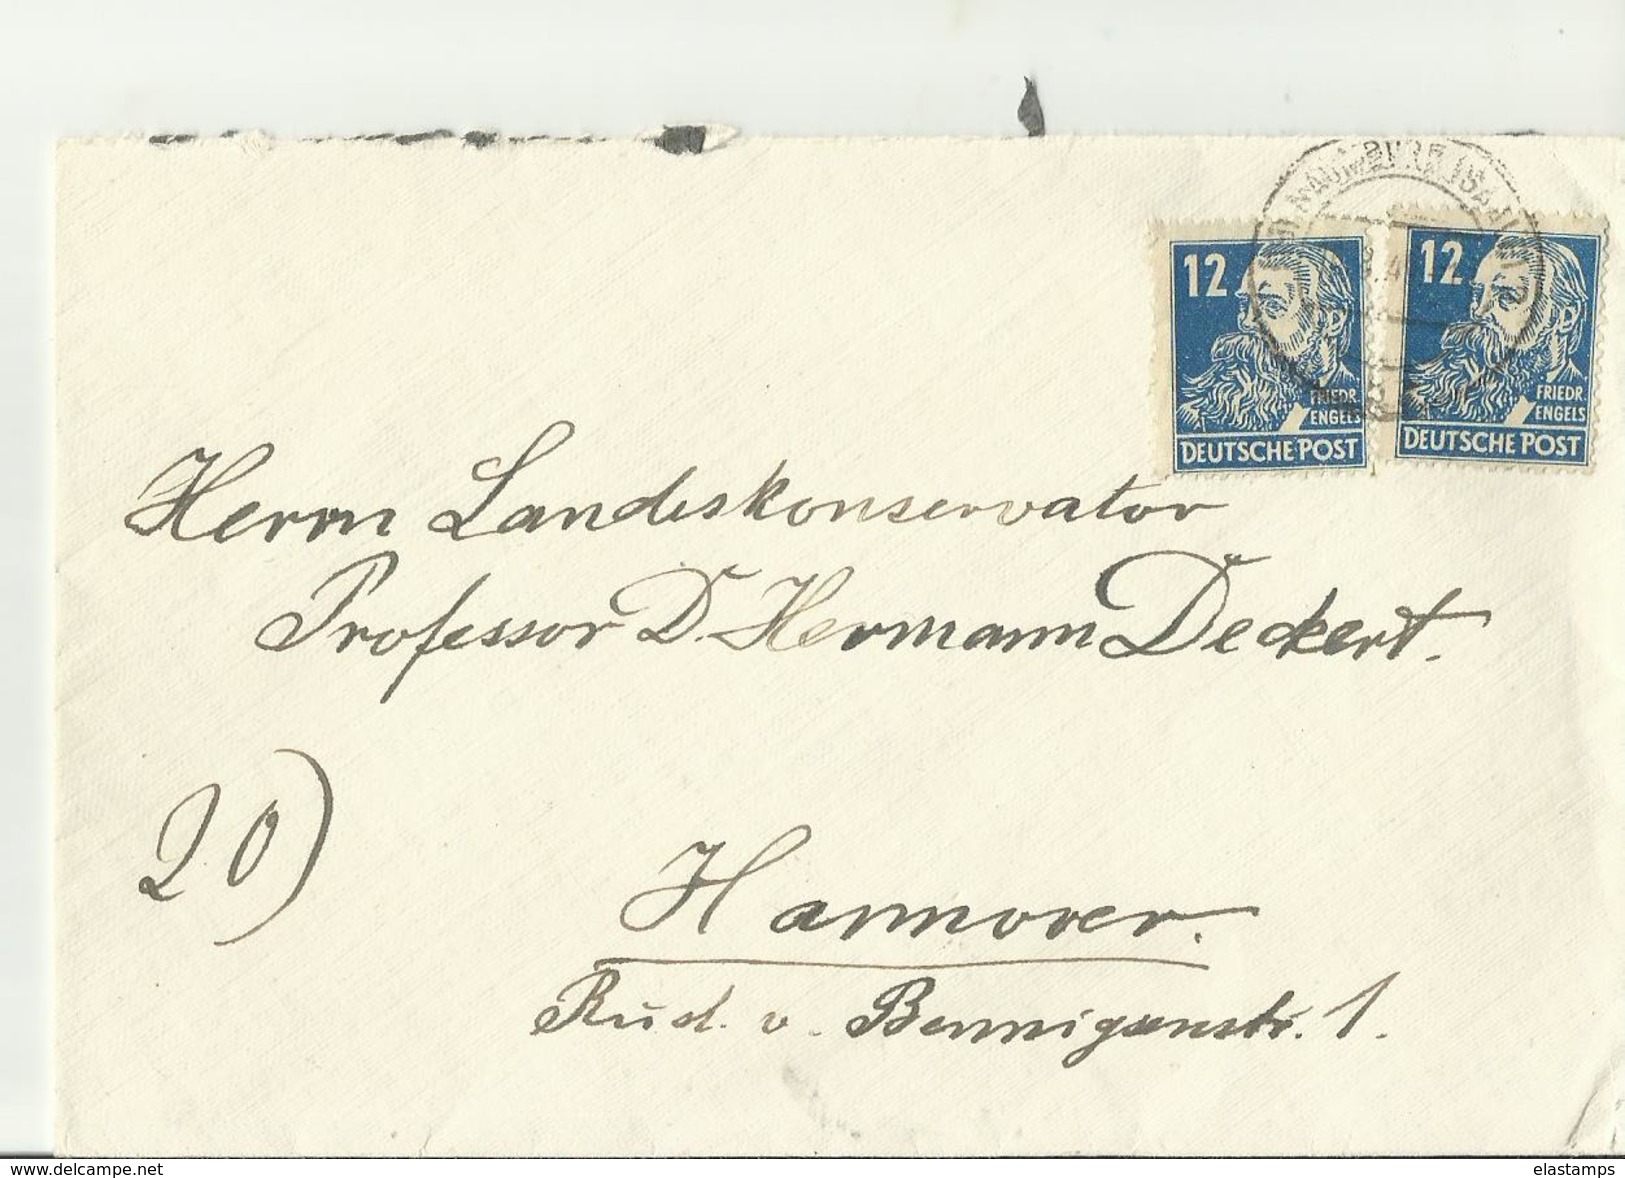 NAUMBURG (SAALE)
12
FRIEDR.
ENGELS
DEUTSCHE POST
12
FRIEDR.
ENGELS
DEUTSCHE POST
Herrn Landeskonservator
Professor Dr. Hermann Deckert.
20)
Hannover.
Rud. v. Bennigsenstr. 1.
www.delcampe.net
elastamps